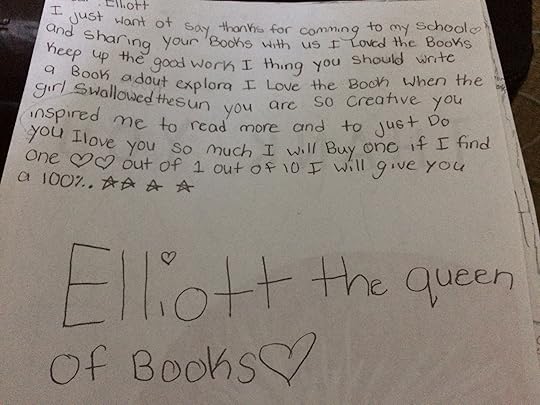 Elliott
I just want ot say thanks for comming to my school♡
and sharing your Books with us I Loved the Books
keep up the good work I thing you should write
a Book adout explora I Love the Book when the
girl Swallowed the sun you are so creative you
inspired me to read more and to just Do
you I love you so much I will Buy one if I find
one ♡♡ out of 1 out of 10 I will give you
a 100%.. ☆☆ ☆ ☆
Elliott the queen
of Books♡